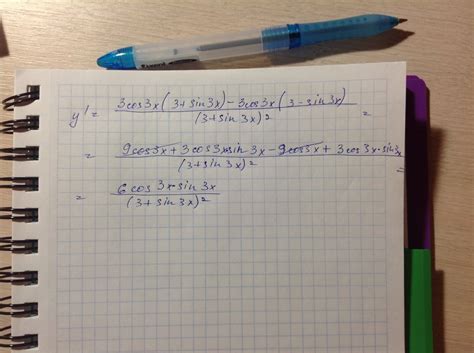 y' = (3cos3x(3+sin3x) - 3cos3x(3-sin3x))/(3+sin3x)² =
= (9cos3x + 3cos3x·sin3x - 9cos3x + 3cos3x·sin3x)/(3+sin3x)² =
= (6cos3x·sin3x)/(3+sin3x)²